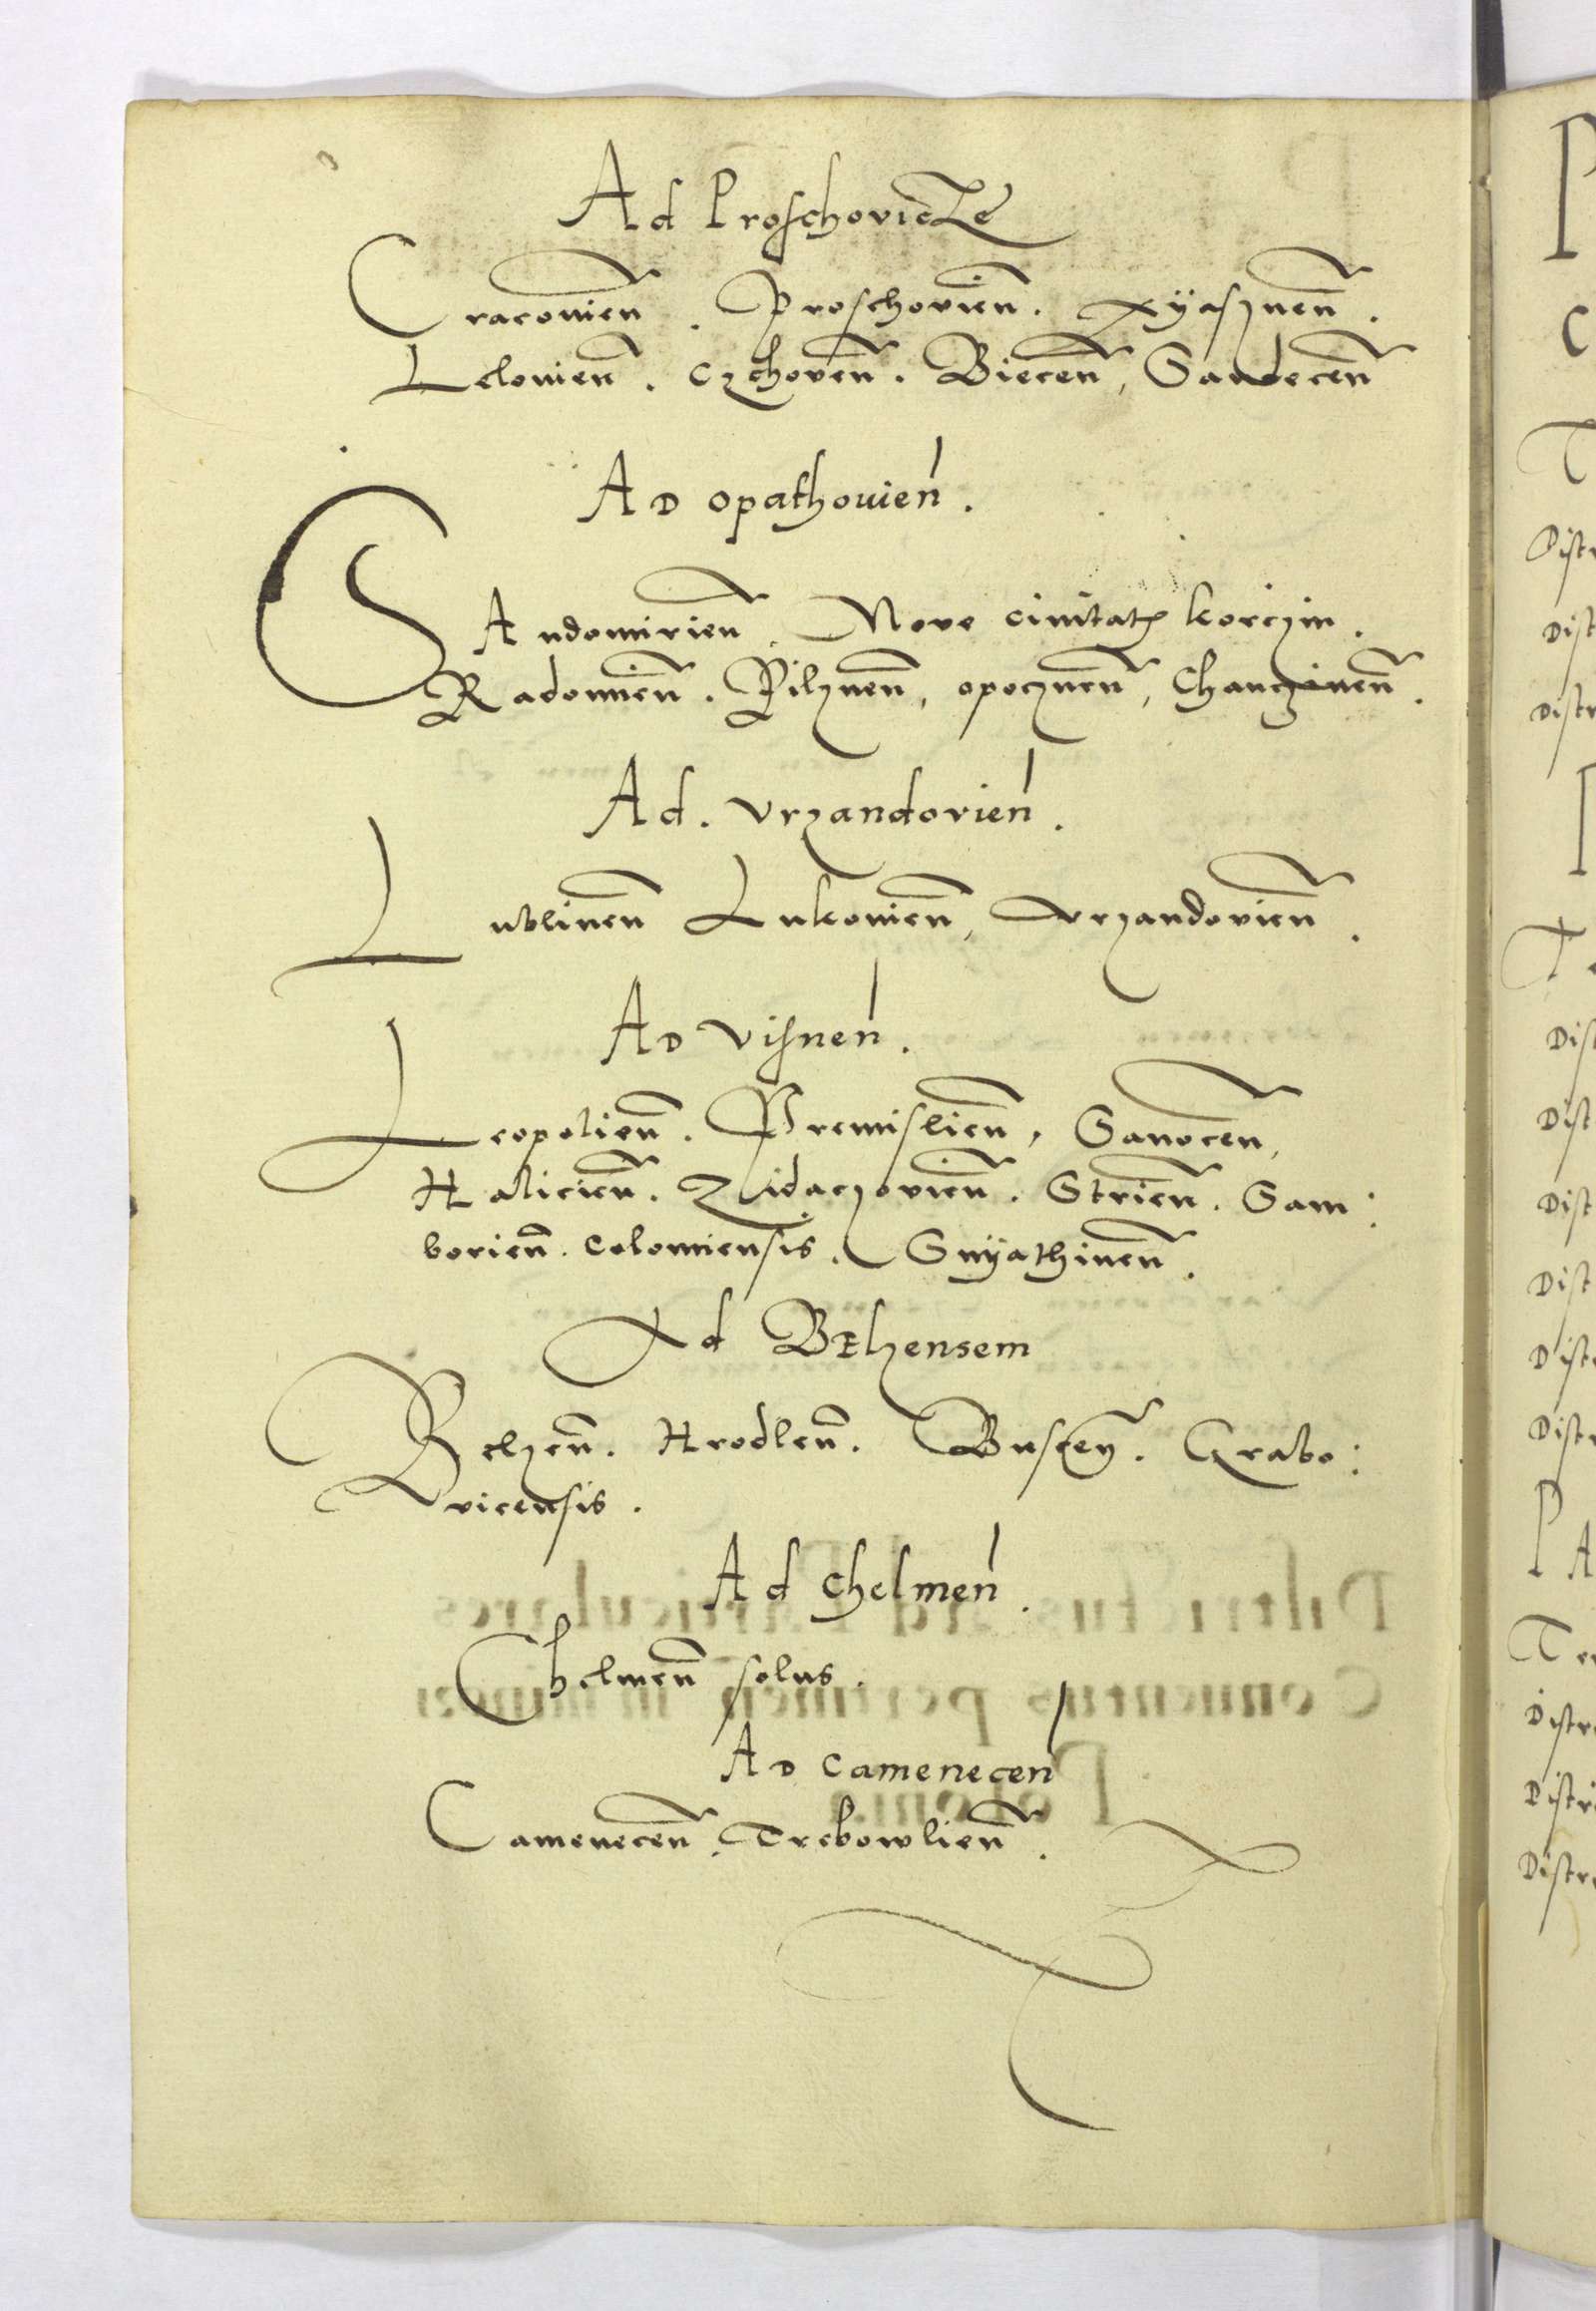 Ad Proschovicze
Cracovien̄. Proschovien̄. Xÿasznen̄.
Lelovien̄. Czchoven̄. Biecen̄, Sandecen̄
AD opathouien̄.
SAndomirien̄. Nove civitatꝭ korczin.
Radomien̄. Pilznen̄, opocznen̄, Chanczinen̄.
Ad. vrzandovien̄.
Lublinen̄ Lukovien̄, Vrzandovien̄.
AD visnen̄.
Leopolien̄. Premislien̄, Sanocen̄,
Halicien̄. Zidaczovien̄. Strien̄. Sam:
borien̄. colomiensis. Snÿathinen̄.
Ad BElzensem
Belzen̄. Hrodlen̄. Buscen̄. Grabo:
vicensis.
Ad chelmen̄.
Chelmen̄ solus.
AD camenecen̄
Camenecen̄. Trebowlien̄.